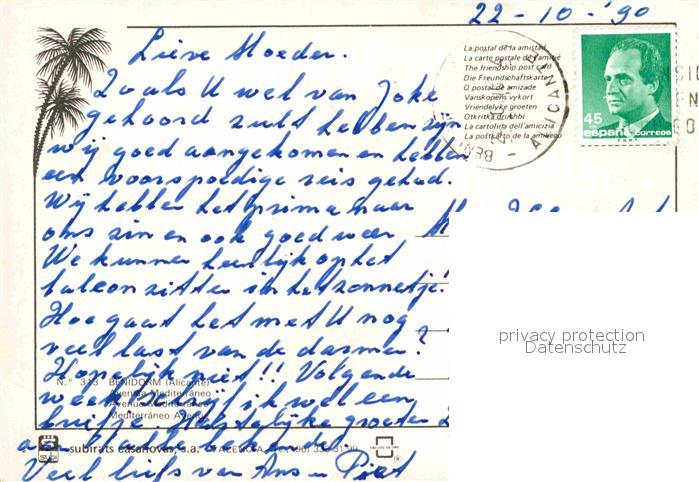 22-10-'90
Lieve Moeder.
Zoals U wel van Joke
gehoord zult hebben zijn
wij goed aangekomen en hebben
een voorspoedige reis gehad.
Wij hebben het prima naar
ons zin en ook goed weer
We kunnen heerlijk op het
balcon zitten in het zonnetje!
Hoe gaat het met U nog
veel last van de darmen?
Hopelijk niet!! Volgende
week schrijf ik wel een
briefje. Hartelijke groeten
aan alle bekende
Veel liefs van Ans en Piet
La postal de la amistad
La carte postale de l'amitié
The friendship post card
Die Freundschaftskarte
O postal de amizade
Vanskapens vykort
Vriendelyke groeten
Otkritka druzhbi
La cartolina dell'amicizia
La postkarto de la amikeco
ALICANTE
45
españa correos
N.° 313 BENIDORM (Alicante)
Avenida Mediterráneo
Avenue Mediterráneo
Mediterráneo Avenue
subirats casanovas, s.a. VALENCIA
privacy protection
Datenschutz